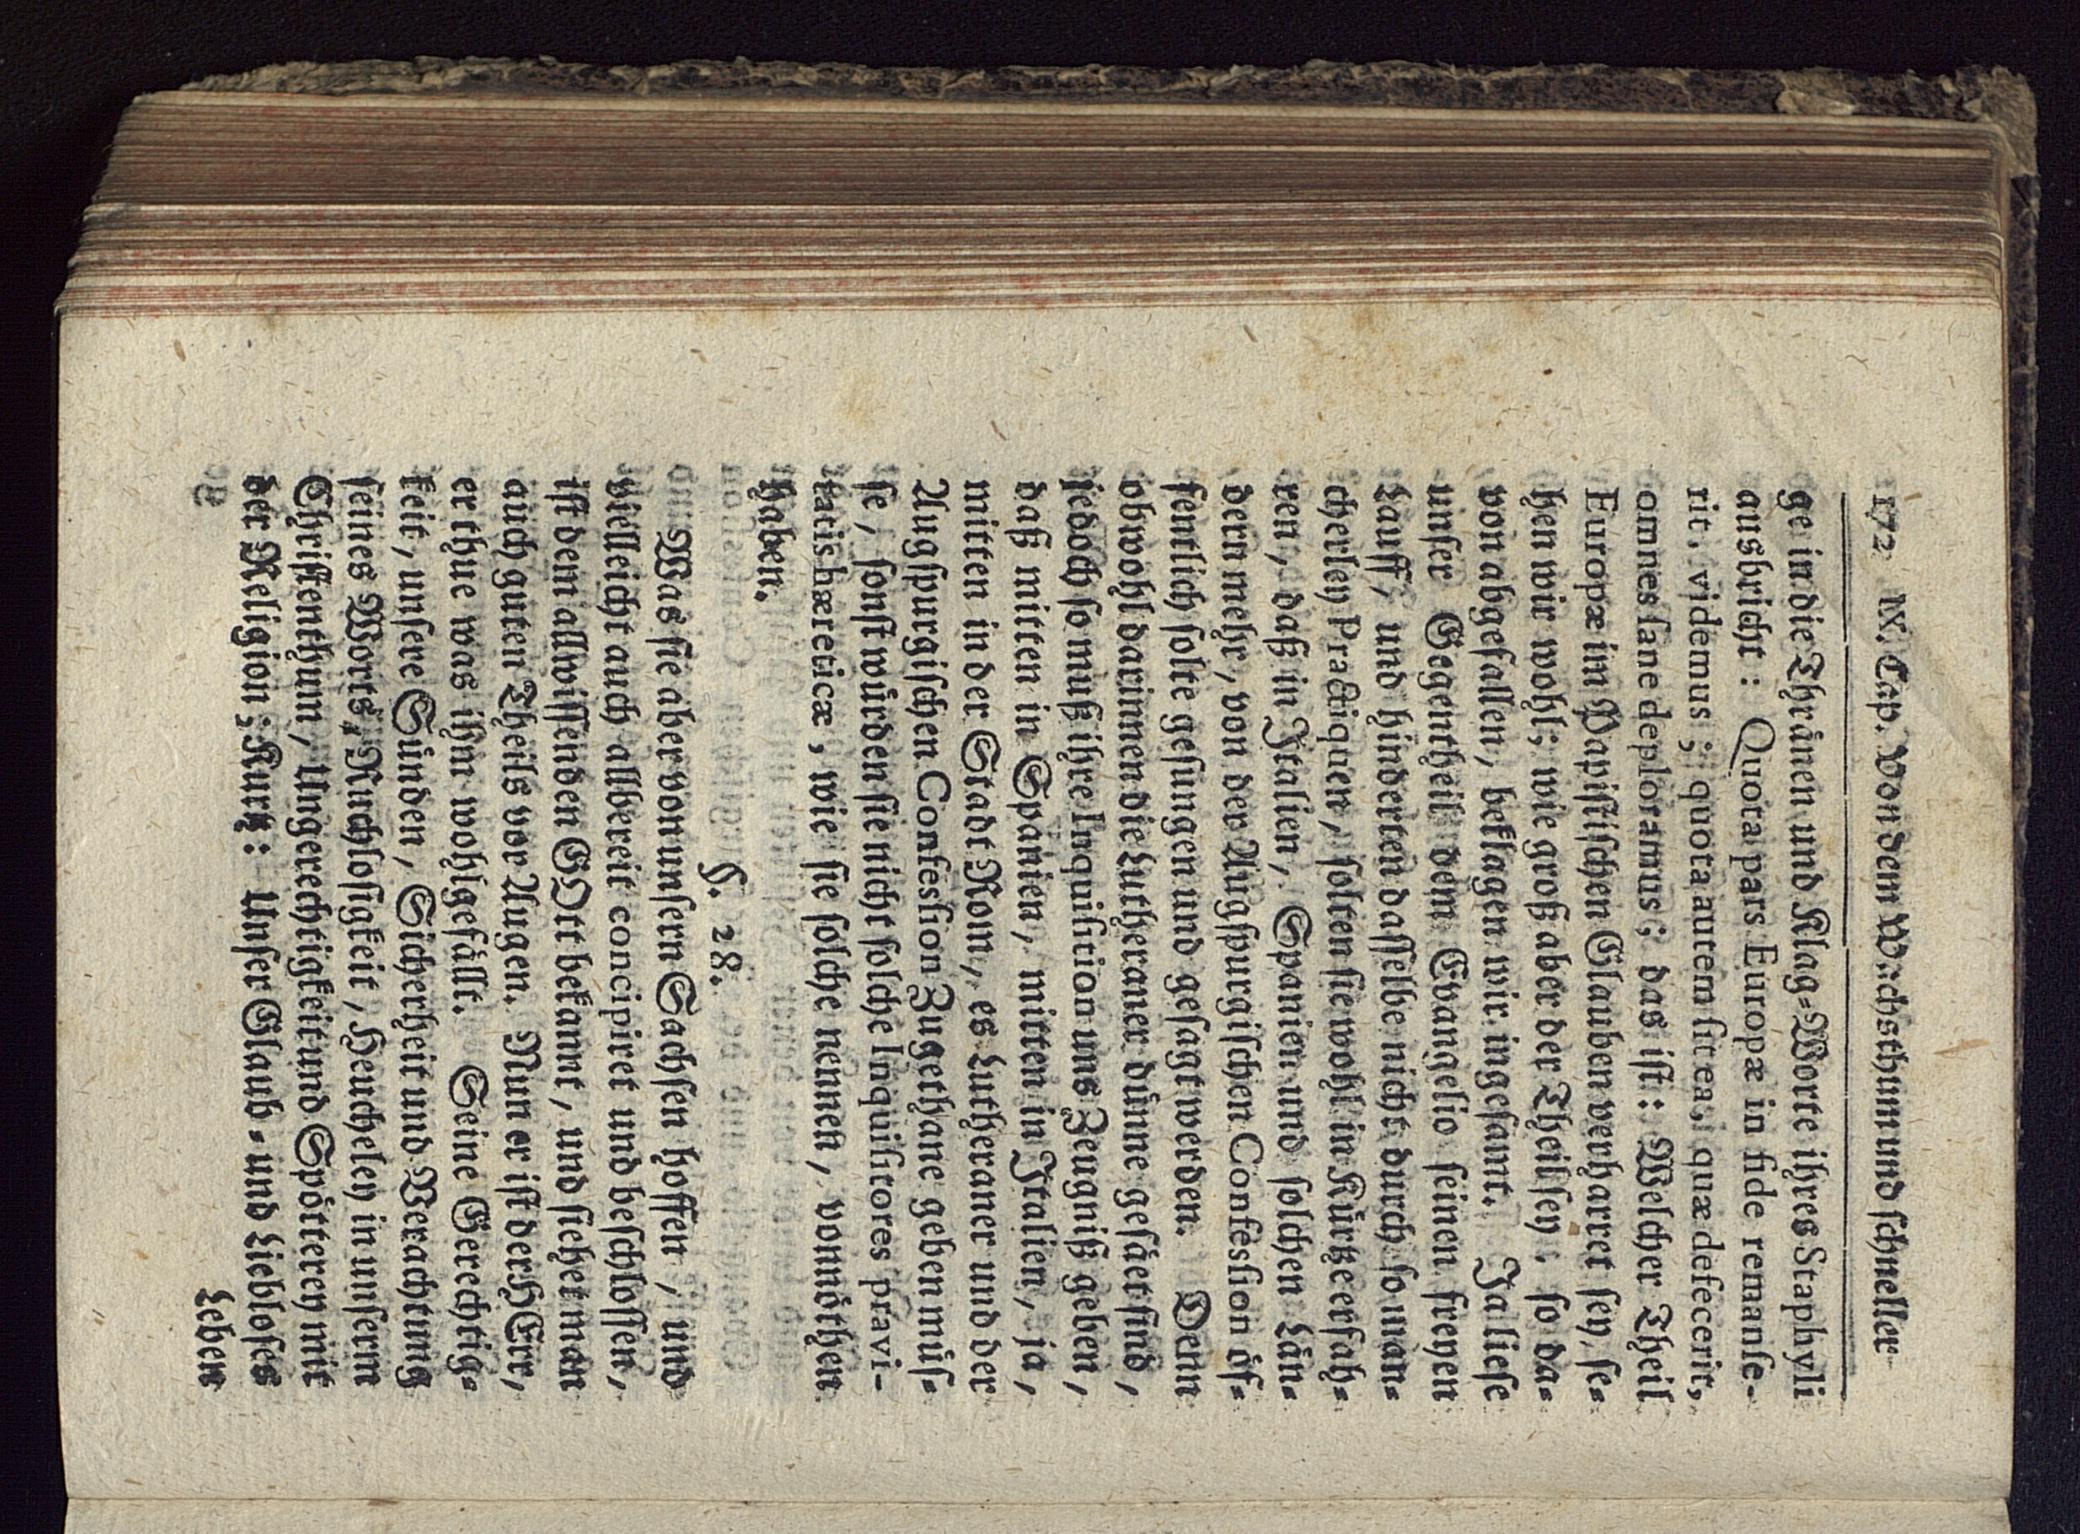 172 IX. Cap. Von dem Wachsthum und schneller
ge in die Thränen und Klag-Worte ihres Staphyli
ausbricht: Quota pars Europæ in fide remanse-
rit, videmus; quota autem sit ea, quæ defecerit,
omnes sane deploramus; das ist: Welcher Theil
Europæ im Papistischen Glauben verharret sey, se-
hen wir wohl; wie groß aber der Theil sey, so da-
von abgefallen, beklagen wir ingesamt. Ja liesse
unser Gegentheil dem Evangelio seinen freyen
Lauff, und hinderten dasselbe nicht durch so man-
cherley Practiquen, solten sie wohl in Kürtze erfah-
ren, daß in Italien, Spanien und solchen Län-
dern mehr, von der Augspurgischen Confession öf-
fentlich solte gesungen und gesagt werden. Denn
obwohl darinnen die Lutheraner dünne gesäet sind,
jedoch so muß ihre Inquisition uns Zeugniß geben,
daß mitten in Spanien, mitten in Italien, ja,
mitten in der Stadt Rom, es Lutheraner und der
Augspurgischen Confession Zugethane geben müs-
se, sonst würden sie nicht solche Inquisitores pravi-
tatis hæreticæ, wie sie solche nennen, vonnöthen
haben.
§. 28.
Was sie aber von unsern Sachsen hoffen, und
vielleicht auch allbereit concipiret und beschlossen,
ist dem allwissenden GOtt bekannt, und siehet man
auch guten Theils vor Augen. Nun er ist der HErr,
er thue was ihm wohlgefällt. Seine Gerechtig-
keit, unsere Sünden, Sicherheit und Verachtung
seines Worts, Ruchlosigkeit, Heucheley in unserm
Christenthum, Ungerechtigkeit und Spötterey mit
der Religion; Kurtz: Unser Glaub- und Liebloses
Leben